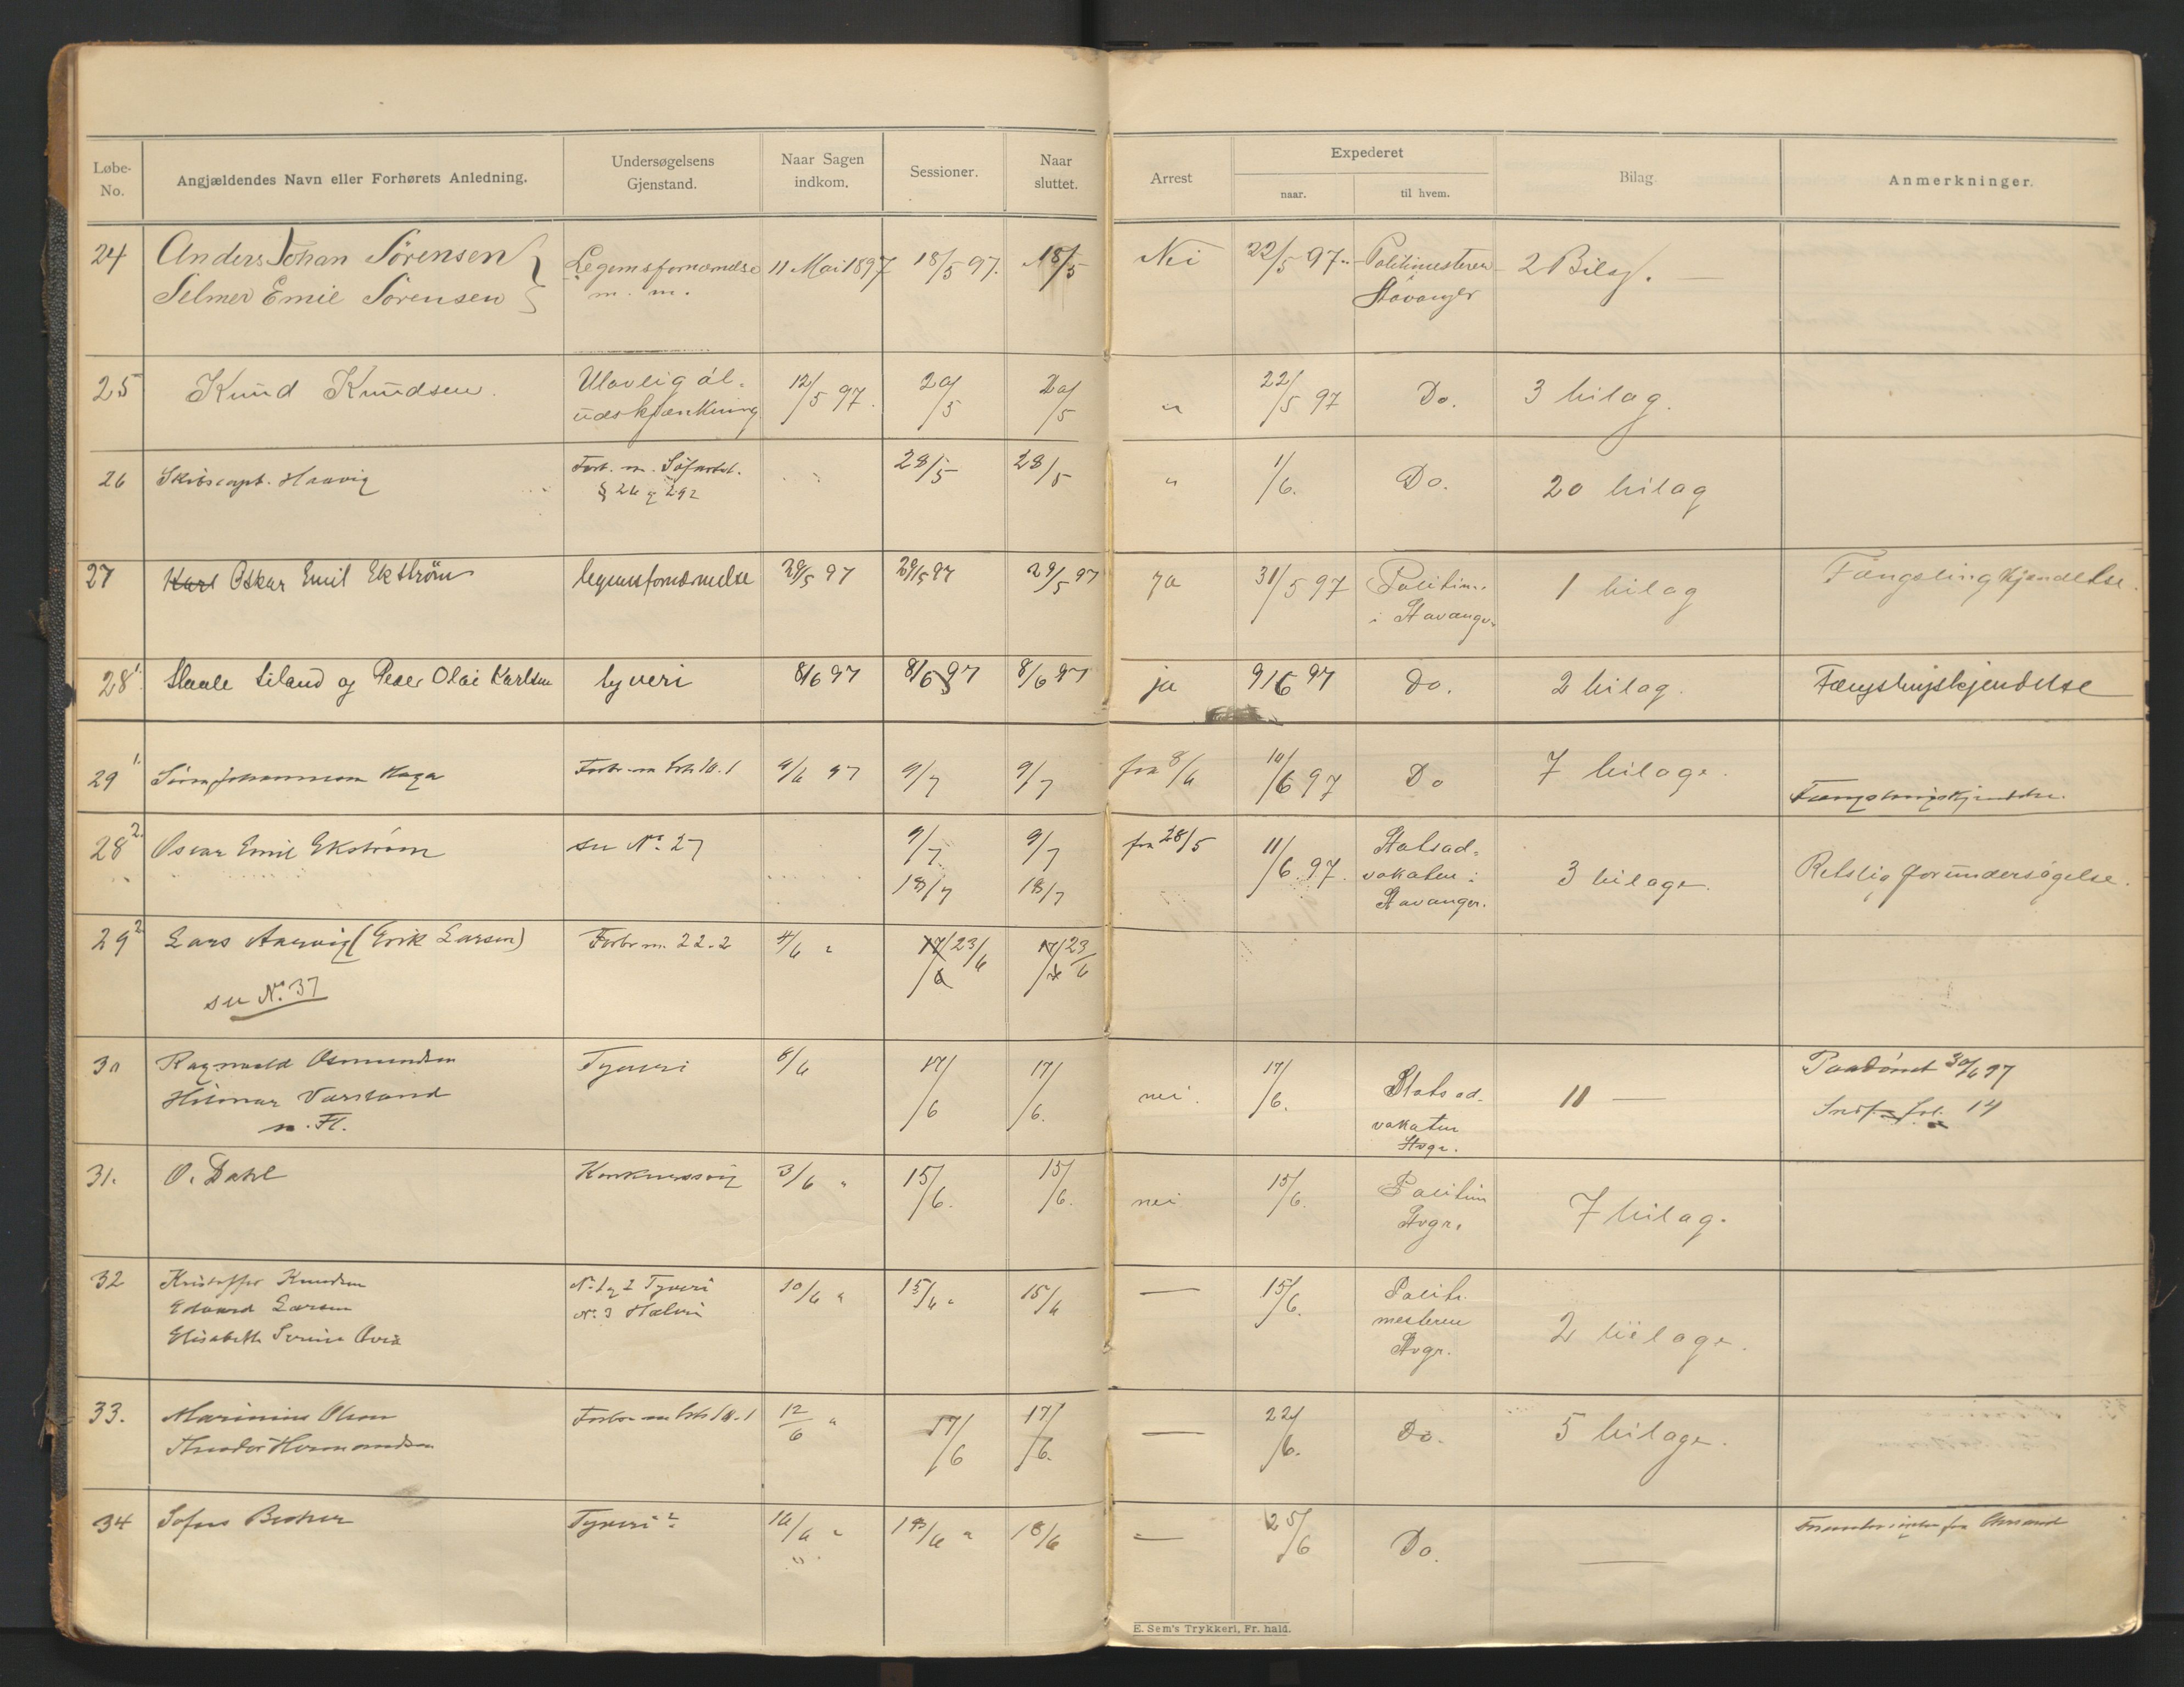 Løbe-No. Angjældendes Navn eller Forhørets Anledning. Undersøgelsens Gjenstand. Naar Sagen indkom. Sessioner. Naar sluttet. Arrest Expederet naar. til hvem. Bilag. Anmerkninger.
24 Anders Johan Sørensen Legemsfornærmelse 11 Mai 1897 18/5 97. 18/5 Nei 22/5 97 Politimesteren 2 Bilag.
Selmer Emil Sørensen m. m. Stavanger
25 Knud Knudsen. Ulovlig øl- 12/5 97. 20/5 20/5 " 22/5 97 Do. 3 bilag.
udskjænkning
26 Skibscapt. Haavig Forb. m. Søfartsl. 28/5 28/5 " 1/6. Do. 20 bilag
§ 26 & 292
27 Karl Oskar Emil Ekstrøm legemsfornærmelse 29/5 97 29/5 97 29/5 97 ja 31/5 97 Politim. 1 bilag Fængslingkjendelse.
i Stavanger
28 1. Staale Eiland og Peder Olai Karlsen tyveri 8/6 97 8/6 97 8/6 97 ja 9/6 97 Do. 2 bilag. Fængslingskjendelse
29 1. 9/6 97 9/7 9/7 fra 8/6 10/6 97 Do 7 bilage. Fængslingskjendelse.
28 2. Oscar Emil Ekstrøm se No. 27 9/7 9/7 fra 28/5 11/6 97. Statsad-
18/7 18/7 vokaten i 3 bilage. Retslig forundersøgelse.
Stavanger.
29 2 Lars Aarvig (Erik Larsen) Forbr. m. 22-2 4/6 " 17/6 23/6 17/6 23/6
se No. 37
30 Ragnvald Osmundsen Tyveri 8/6 17/6 17/6. nei. 17/6. Statsad- 11 — Paadømt 30/6 97
Hilmar Varland vokaten fol. 14
m. Fl. Stvgr.
31. O. Dahl Konkurssvig 3/6 " 15/6. 15/6. nei 15/6. Politim 7 bilag.
Stvgr.
32 Kristoffer Knudsen No. 1 og 2 Tyveri 10/6 " 15/6 " 15/6 — 15/6. Politi-
Edvard Larsen No. 3 Hæleri mesteren 2 bilage.
Elisabeth Serine Stvgr.
33. Marinius Olsen 12/6 " 17/6 17/6. — 22/6. Do. 5 bilage.
Theodor
34 Sofus Tyveri 16/6 " 18/6 " 18/6 — 25/6 Do. —
E. Sem's Trykkeri, Fr. hald.